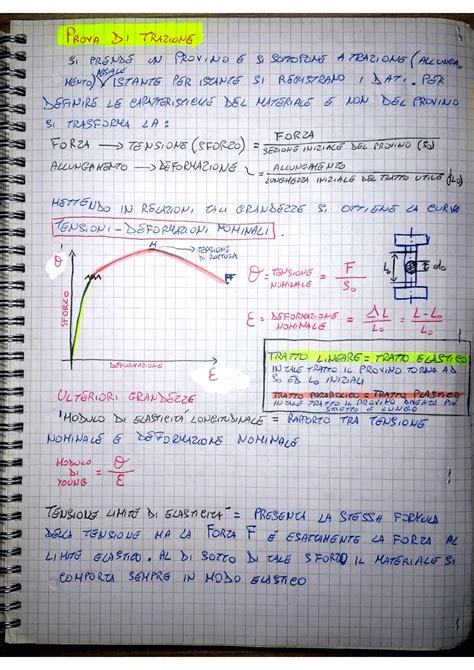 PROVA DI TRAZIONE
SI PRENDE UN PROVINO E SI SOTTOPONE A TRAZIONE (ALLUNGA-
MENTO) ASSIALE ISTANTE PER ISTANTE SI REGISTRANO I DATI. PER
DEFINIRE LE CARATTERISTICHE DEL MATERIALE E NON DEL PROVINO
SI TRASFORMA LA:
FORZA → TENSIONE (SFORZO) = FORZA / SEZIONE INIZIALE DEL PROVINO (S0)
ALLUNGAMENTO → DEFORMAZIONE = ALLUNGAMENTO / LUNGHEZZA INIZIALE DEL TRATTO UTILE (L0)
METTENDO IN RELAZIONI TALI GRANDEZZE SI OTTIENE LA CURVA
TENSIONI-DEFORMAZIONI NOMINALI.
M
TENSIONE DI ROTTURA
σ
SFORZO
DEFORMAZIONE
ε
L0
d0
σ = TENSIONE NOMINALE = F / S0
ε = DEFORMAZIONE NOMINALE = ΔL / L0 = L-L0 / L0
TRATTO LINEARE = TRATTO ELASTICO
IN TALE TRATTO IL PROVINO TORNA AD
S0 ED L0 INIZIALI
TRATTO PARABOLICO = TRATTO PLASTICO
IN TALE TRATTO IL PROVINO DIVENTA PIÙ
STRETTO E LUNGO
ULTERIORI GRANDEZZE
MODULO DI ELASTICITÀ LONGITUDINALE = RAPPORTO TRA TENSIONE
NOMINALE E DEFORMAZIONE NOMINALE
MODULO DI YOUNG = σ / ε
TENSIONE LIMITE DI ELASTICITÀ = PRESENTA LA STESSA FORMULA
DELLA TENSIONE MA LA FORZA F È ESATTAMENTE LA FORZA AL
LIMITE ELASTICO. AL DI SOTTO DI TALE SFORZO IL MATERIALE SI
COMPORTA SEMPRE IN MODO ELASTICO